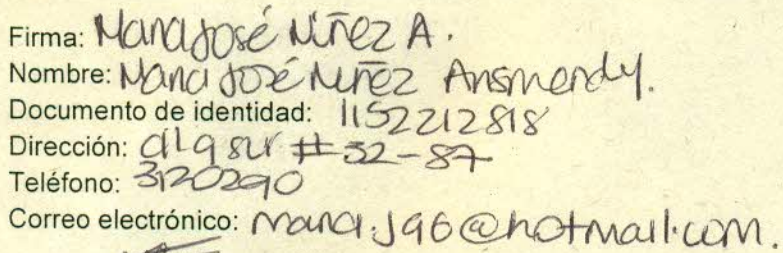 Firma: Maria José Núñez A.
Nombre: Maria José Núñez Arismendy.
Documento de identidad: 1152212818
Dirección: cll 9 sur # 32-87
Teléfono: 3120290
Correo electrónico: maria.j96@hotmail.com.